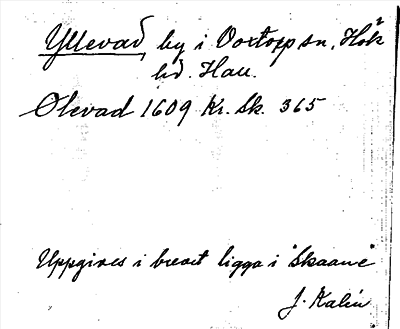 Yllevad, by i Voxtorp sn, Hök
hd. Hall.
Ølevad 1609 Kr. Sk. 365
Uppgives i brevet ligga i "Skaane"
J. Kalén